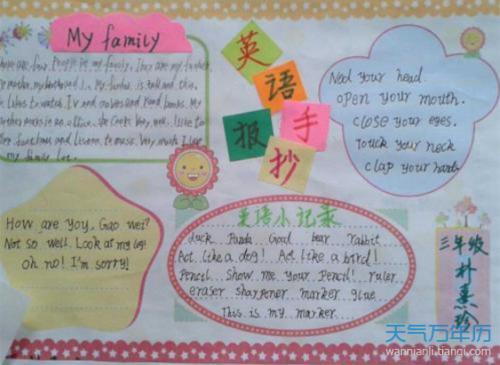 My family
英语手抄报
Nod your head.
open your mouth.
close your eyes.
Touch your neck
clap your hands
There are four People in my family. They are my father,
my mother, my brother and I. My father is tall and thin.
He likes to watch TV and movies and read books. My
mother works in an office. She cooks
and listen to music. very much I love
my family
How are you, Gao wei?
Not so well. Look at my leg!
oh no! I'm sorry!
英语小记录
duck Panda Good bear rabbit
Act like a dog! Act like a bird!
Pencil Show me your Pencil! ruler
eraser sharpener marker glue
This is my marker....
三年级
朴惠玲
天气万年历
wannianli.tianqi.com